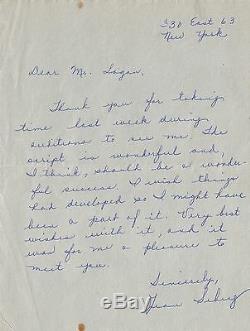 330 East 63
New York
Dear Mr. Logan,
Thank you for taking
time last week during
auditions to see me. The
script is wonderful and,
I think, should be a wonder-
ful success. I wish things
had developed so I might have
been a part of it. Very best
wishes with it, and it
was for me a pleasure to
meet you.
Sincerely,
Jean Seberg